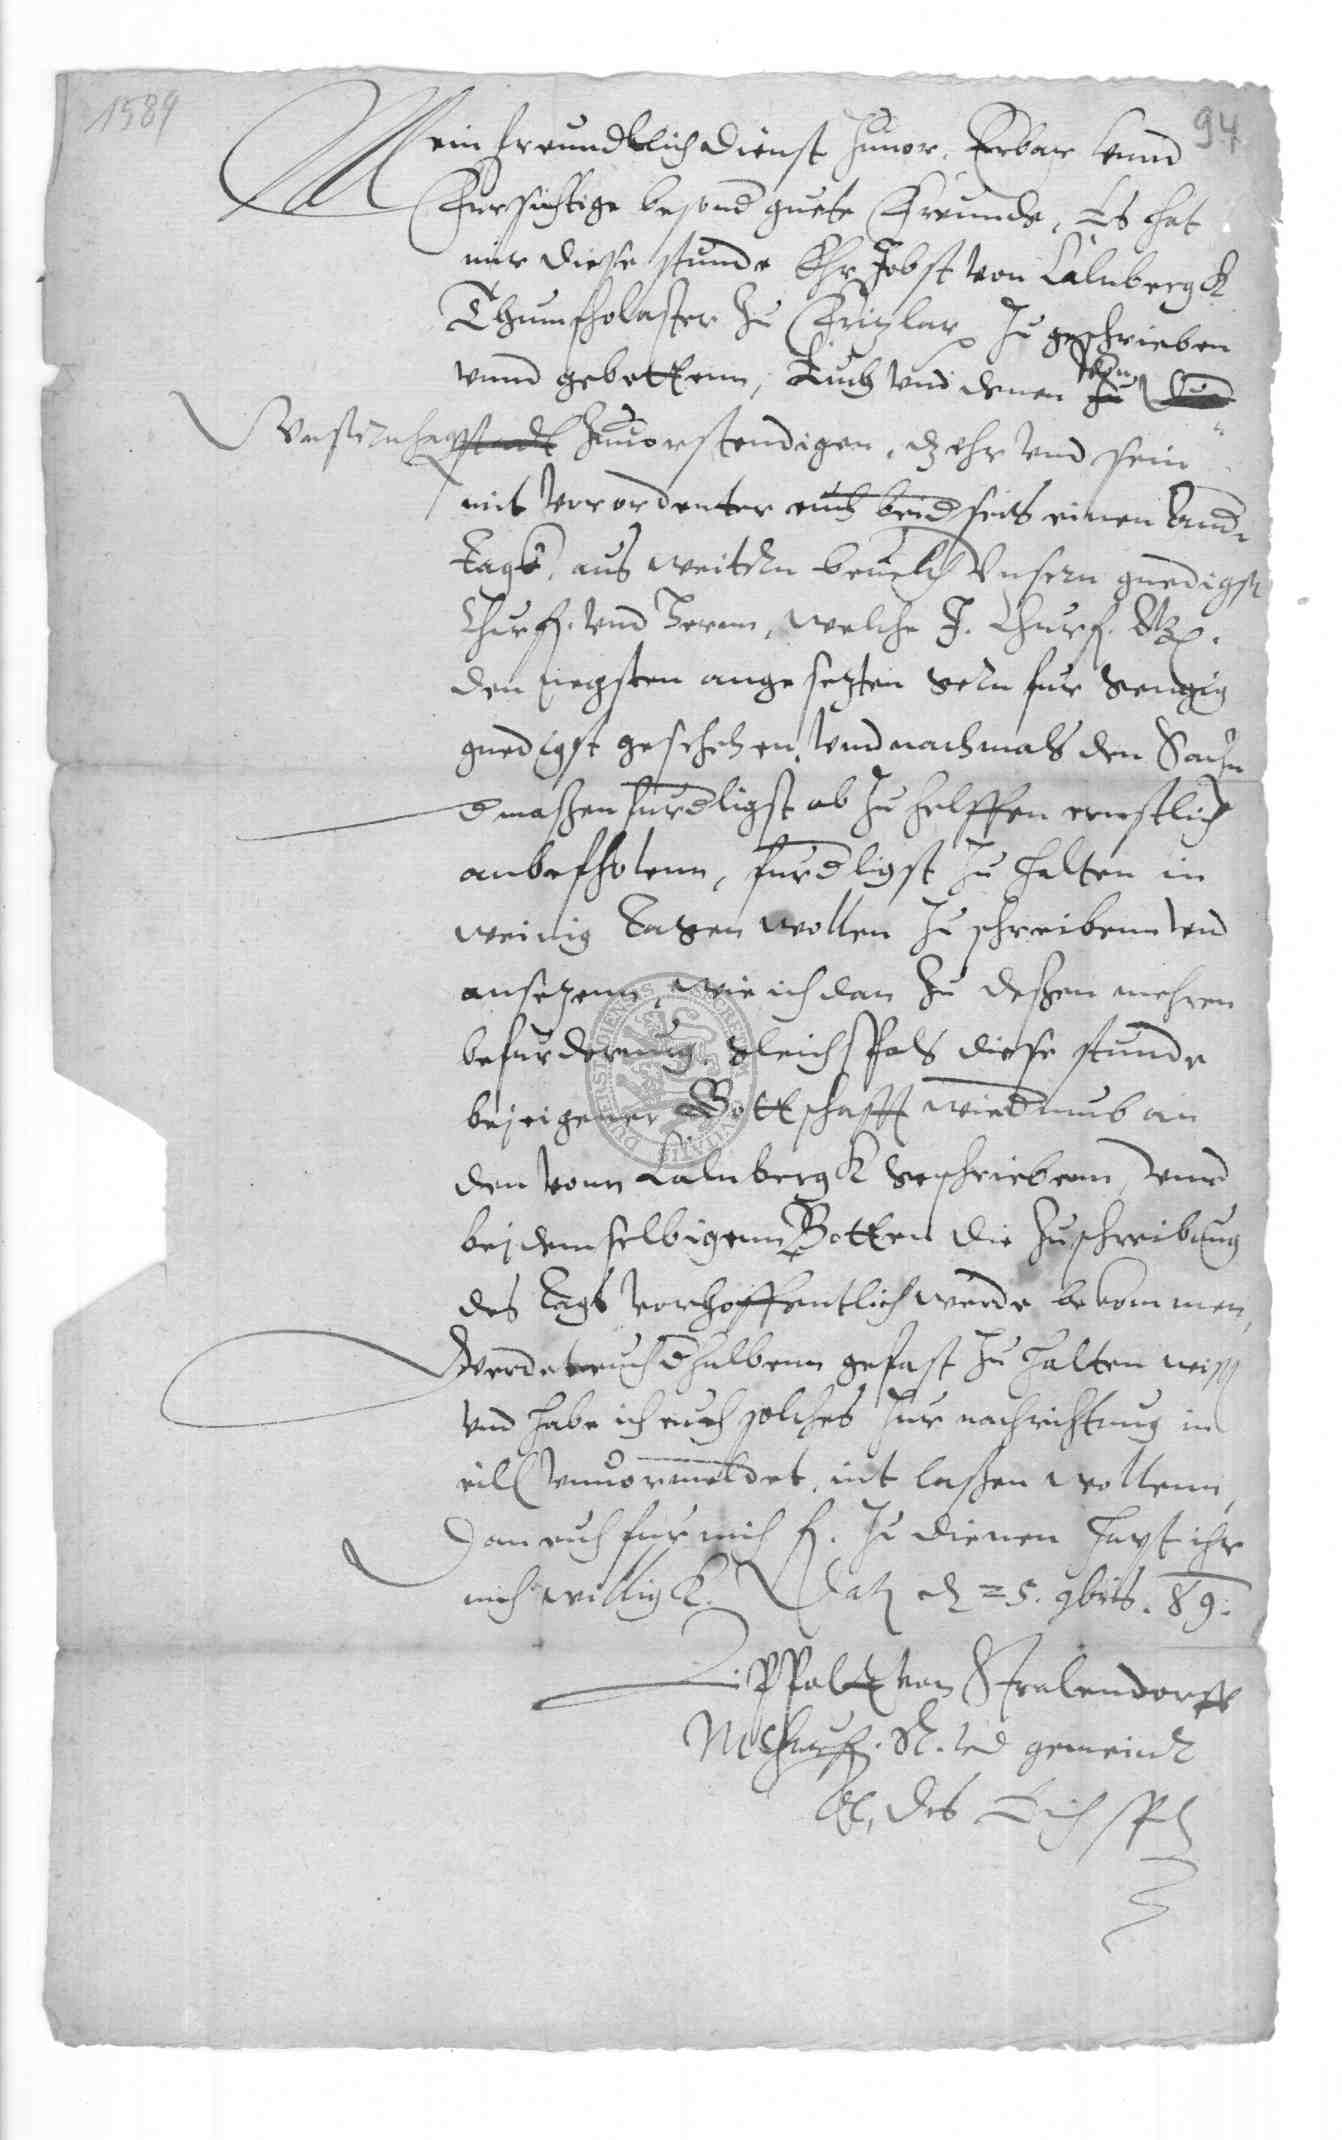 1589
94
Mein freundtlich Dienst zuuor, Erbar vnnd
Fursichtige besond guete Freunde, Es hat
mir diese stunde Ehr Jobst von Calnbergk
Thumscholaster zu Fritzlar zu geschrieben
vnnd gebettenn, Euch vnd denen
zuuorstendigen, dz ehr vnd sein
mit verordenter euch beidseits einen
Tagk, aus weitern beuelch vnsern gnedigst
Churf. vnd herrn, welche J. Churf. G.
den negsten angesetzten
gnedigst geschehen, vnd nachmals den Sachen
dmaßen furdligst ab zu helffen ernstlich
anbefholenn, furdligst zu halten in
weinig tagen wollen zu schreibenn vnd
ansetzenn, wie ich dan zu deßen mehren
befurderung gleichsfals diese stunde
bei eigener Bottschafft widrumb an
den vonn Calnbergk geschriebenn, vnnd
bei demselbigenn Botten die zuschreibung
des tags verhoffentlich werde bekommen,
Werdet euch dhalbenn gefast zu halten wissen
vnd habe ich euch solches zur nachrichtung in
eill vnuormeldet nit laßen wollenn,
Dan euch fur mich f. zu dienen hapt ihr
mich willigk. Dat den 25. 9bris. 89.
Lippolt von Stralendorff
Churf. R. vnd gemeinder
des Eichsfl